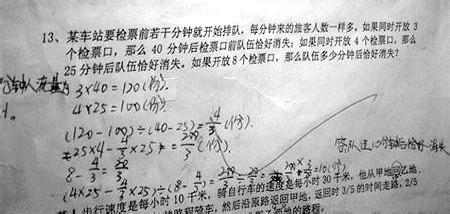 13、某车站要检票前若干分钟就开始排队，每分钟来的旅客人数一样多。如果同时开放 3
个检票口，那么 40 分钟后检票口前队伍恰好消失；如果同时开放 4 个检票口，那么
25 分钟后队伍恰好消失。如果开放 8 个检票口，那么队伍多少分钟后恰好消失？
3×40=120(份).
4×25=100(份).
(120-100)÷(40-25)=4/3(份).
4×25-4/3×25=200/3(份).
8-4/3=20/3
(4×25-4/3×25)÷(8-4/3)=200/3÷20/3=200/3×3/20=10(分)
答:队过10分钟后恰好消失
人步行速度是每小时 10 千米，骑自行车的速度是每小时 30 千米，他从甲地到乙地
骑车，然后沿原路返回甲地，返回时 3/5 的时间走路，2/5
的路程